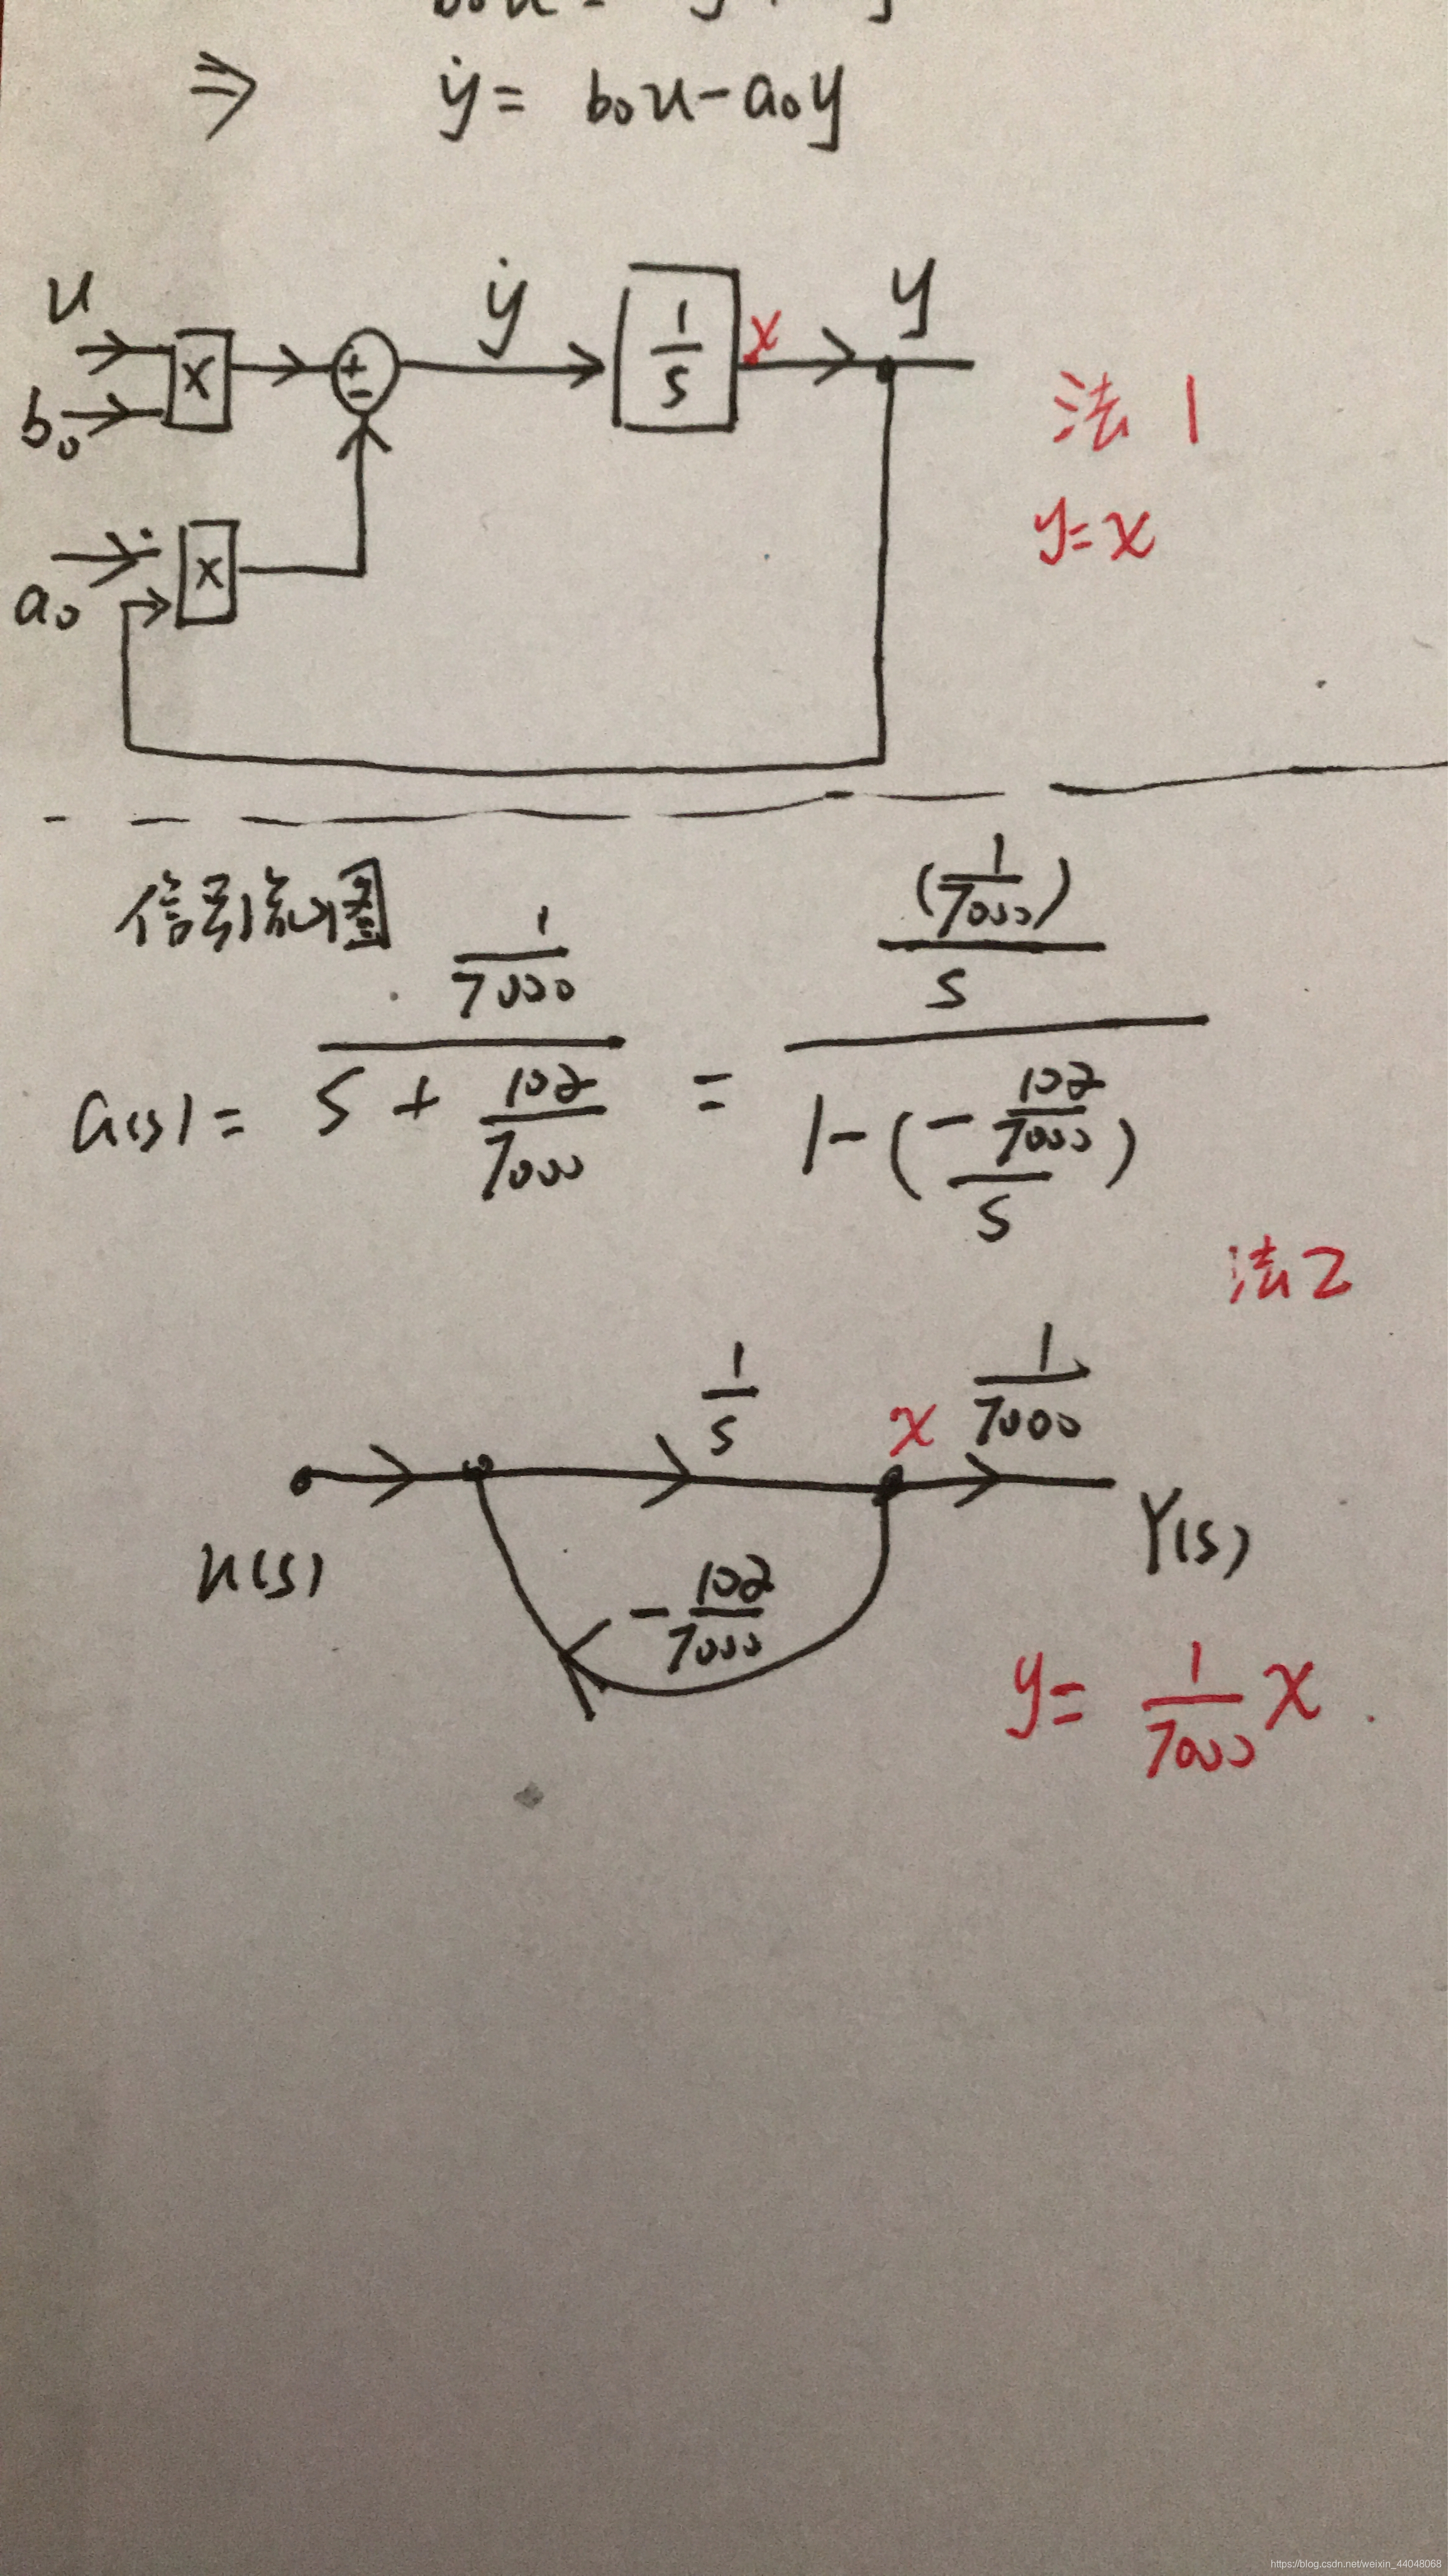 ⇒ ẏ = b₀u - a₀y
u
ẏ
y
x
+
-
1/s
x
b₀
法1
y=x
x
a₀
信号流图
G(s) = (1/7000)/(s + 102/7000) = ((1/7000)/s)/(1-(-102/7000)/s)
法2
1/s
x
1/7000
u(s)
Y(s)
-102/7000
y = 1/7000 x
https://blog.csdn.net/weixin_44048068